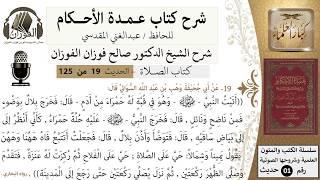 شرح كتاب عمدة الأحكام
للحافظ / عبدالغني المقدسي
شرح الشيخ الدكتور صالح فوزان الفوزان
كتاب الصلاة - الحديث 19 من 125
الفوزان
19- عن أبي جحيفة وهب بن عبد الله السوائي قال:
((أتيت النبي - ﷺ - وهو في قبة له حمراء من أدم - قال: فخرج بلال بوضوء،
فمن ناضح ونائل، قال: فخرج النبي - ﷺ - عليه حلة حمراء، كأني أنظر
إلى بياض ساقيه، قال: فتوضأ وأذن بلال، قال: فجعلت أتتبع فاه ههنا وههنا،
يقول يمينا وشمالا: حي على الصلاة؛ حي على الفلاح ثم ركزت له عنزة، فتقدم
وصلى الظهر ركعتين، ثم لم يزل يصلي ركعتين حتى رجع إلى المدينة))
سلسلة الكتب والمتون
العلمية وشروحها الصوتية
رقم 01 حديث